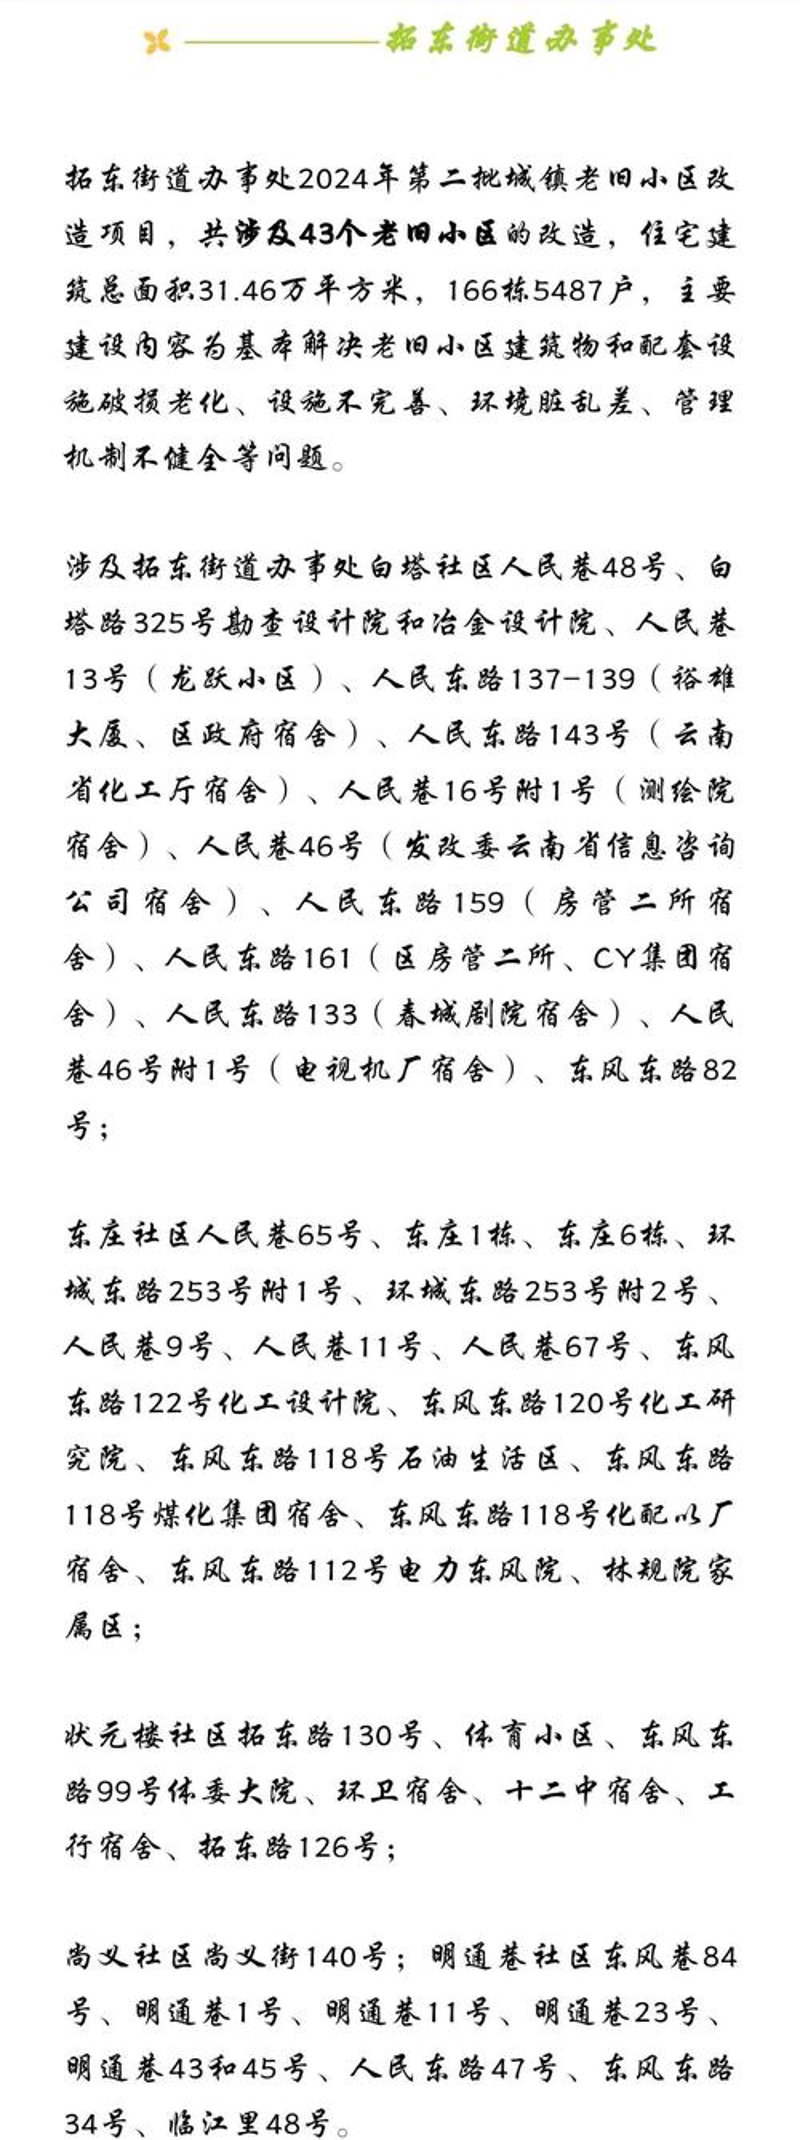 拓东街道办事处
拓东街道办事处2024年第二批城镇老旧小区改
造项目，共涉及43个老旧小区的改造，住宅建
筑总面积31.46万平方米，166栋5487户，主要
建设内容为基本解决老旧小区建筑物和配套设
施破损老化、设施不完善、环境脏乱差、管理
机制不健全等问题。
涉及拓东街道办事处白塔社区人民巷48号、白
塔路325号勘查设计院和冶金设计院、人民巷
13号（龙跃小区）、人民东路137-139（裕雄
大厦、区政府宿舍）、人民东路143号（云南
省化工厅宿舍）、人民巷16号附1号（测绘院
宿舍）、人民巷46号（发改委云南省信息咨询
公司宿舍）、人民东路159（房管二所宿
舍）、人民东路161（区房管二所、CY集团宿
舍）、人民东路133（春城剧院宿舍）、人民
巷46号附1号（电视机厂宿舍）、东风东路82
号；
东庄社区人民巷65号、东庄1栋、东庄6栋、环
城东路253号附1号、环城东路253号附2号、
人民巷9号、人民巷11号、人民巷67号、东风
东路122号化工设计院、东风东路120号化工研
究院、东风东路118号石油生活区、东风东路
118号煤化集团宿舍、东风东路118号化配以厂
宿舍、东风东路112号电力东风院、林规院家
属区；
状元楼社区拓东路130号、体育小区、东风东
路99号体委大院、环卫宿舍、十二中宿舍、工
行宿舍、拓东路126号；
尚义社区尚义街140号；明通巷社区东风巷84
号、明通巷1号、明通巷11号、明通巷23号、
明通巷43和45号、人民东路47号、东风东路
34号、临江里48号。